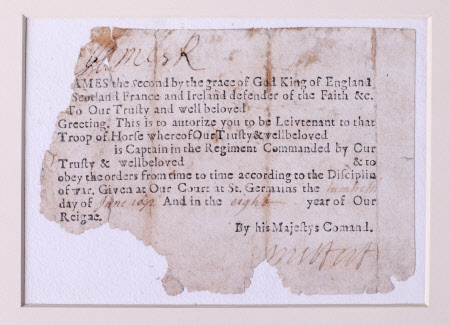 James R
AMES the second by the grace of God King of England
Scotland France and Ireland defender of the Faith &c.
To Our Trusty and well beloved
Greeting. This is to autorize you to be Leivtenant to that
Troop of Horse whereof Our Trusty & wellbeloved
is Captain in the Regiment Commanded by Our
Trusty & wellbeloved & to
obey the orders from time to time according to the Disciplin
of war. Given at Our Court at St. Germains the
day of June And in the eight year of Our
Reigne.
By his Majestys Comand.